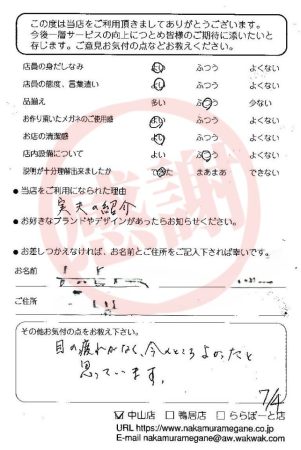 この度は当店をご利用頂きましてありがとうございます。
今後一層サービスの向上につとめ皆様のご期待に添いたいと
存じます。ご意見お気付の点などお教えください。
店員の身だしなみ よい ふつう よくない
店員の態度、言葉遣い よい ふつう よくない
品揃え 多い ふつう 少ない
お作り頂いたメガネのご使用感 よい ふつう よくない
お店の清潔感 よい ふつう よくない
店内設備について よい ふつう よくない
説明が十分理解出来ましたか できた まあまあ できない
●当店をご利用になられた理由
の紹介
●お好きなブランドやデザインがあったらお知らせください。
●お差しつかえなければ、お名前とご住所をご記入下されば幸いです。
お名前
ご住所
その他お気付の点をお教え下さい。
目の疲れがなく、今のところよかったと
思っています。
7/4
☑中山店 □鴨居店 □ららぽーと店
URL https://www.nakamuramegane.co.jp
E-mail nakamuramegane@aw.wakwak.com
感謝